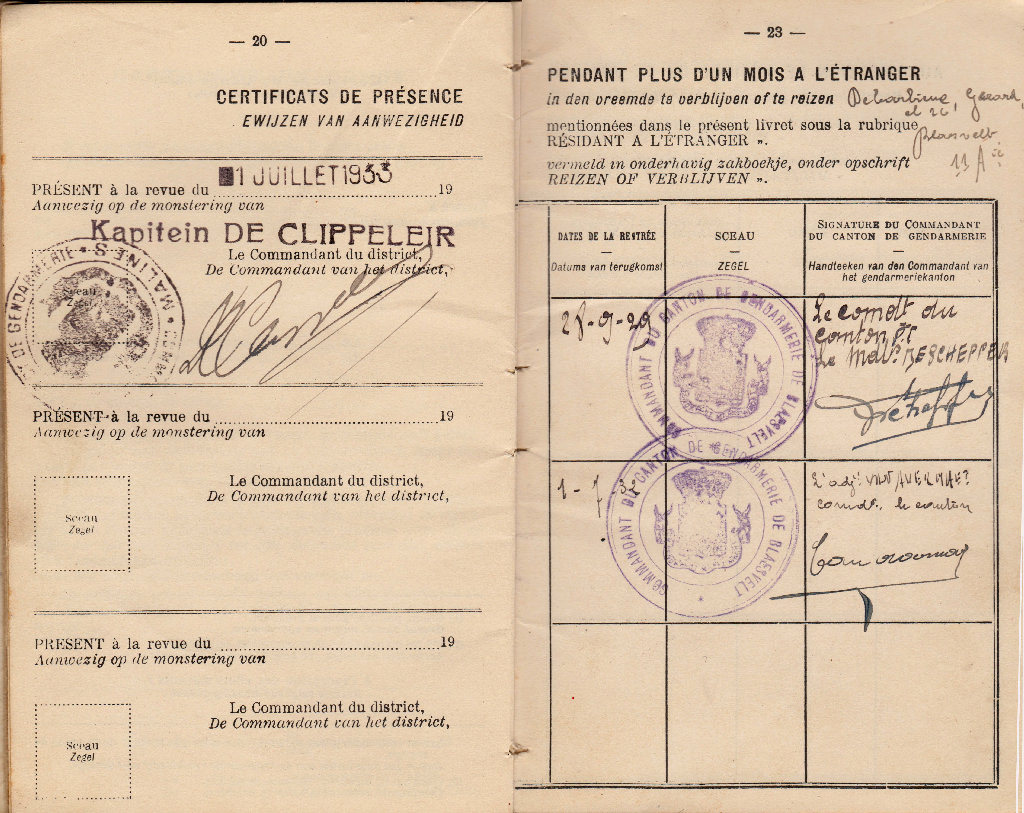 — 20 —
CERTIFICATS DE PRÉSENCE
EWIJZEN VAN AANWEZIGHEID
PRÉSENT à la revue du 1 JUILLET 1933 19
Aanwezig op de monstering van
Kapitein DE CLIPPELEIR
Le Commandant du district,
De Commandant van het district,
Sceau
Zegel
DE GENDARMERIE • MALINES •
PRÉSENT à la revue du 19
Aanwezig op de monstering van
Le Commandant du district,
De Commandant van het district,
Sceau
Zegel
PRÉSENT à la revue du 19
Aanwezig op de monstering van
Le Commandant du district,
De Commandant van het district,
Sceau
Zegel
— 23 —
PENDANT PLUS D'UN MOIS A L'ÉTRANGER
in den vreemde te verblijven of te reizen
mentionnées dans le présent livret sous la rubrique
Blasvelt
RÉSIDANT A L'ÉTRANGER ».
vermeld in onderhavig zakboekje, onder opschrift
REIZEN OF VERBLIJVEN ».
DATES DE LA RENTRÉE
Datums van terugkomst
SCEAU
ZEGEL
SIGNATURE DU COMMANDANT
DU CANTON DE GENDARMERIE
Handteeken van den Commandant van
het gendarmeriekanton
28-9-29
COMMANDANT DU CANTON DE GENDARMERIE DE BLAESVELT
Le comdt du
canton
Le DESCHEPPER
1-7 32
COMMANDANT DU CANTON DE GENDARMERIE DE BLAESVELT
L'adjt
comdt le canton